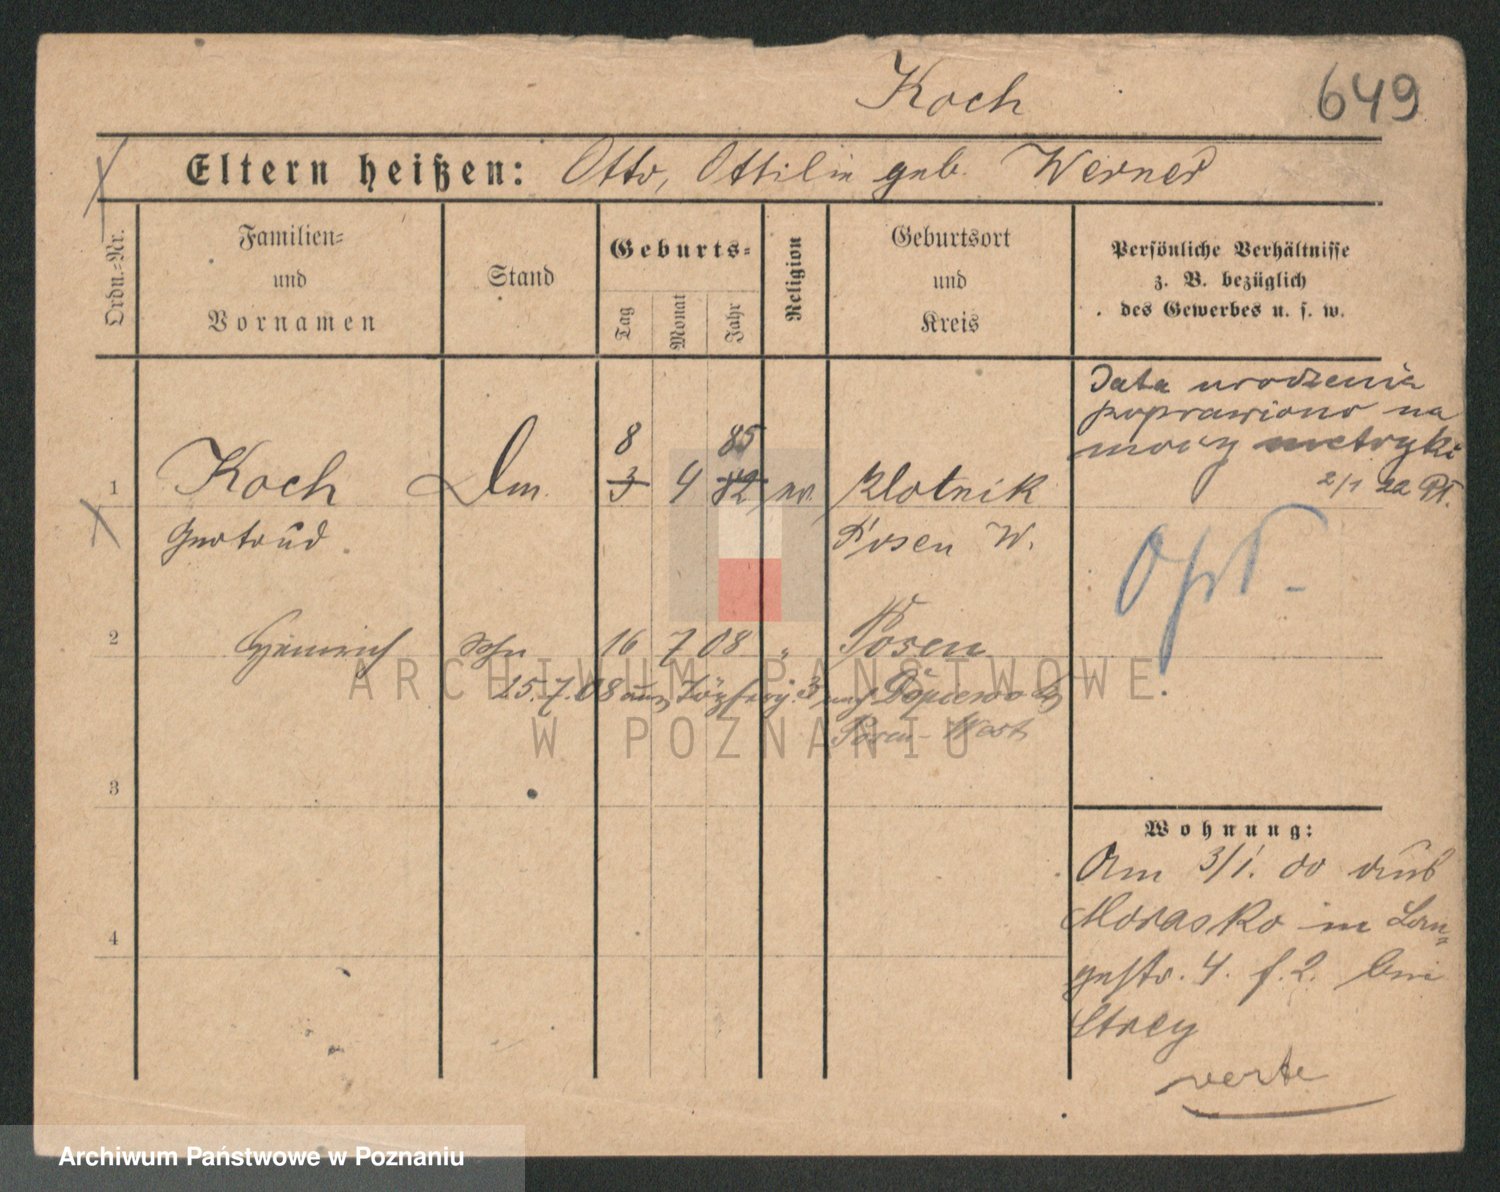 Koch
649
Eltern heißen: Otto, Ottilie geb. Werner
Ordn.=Nr.
Familien=
und
Vornamen
Stand
Geburts=
Tag
Monat
Jahr
Religion
Geburtsort
und
Kreis
Persönliche Verhältnisse
z. B. bezüglich
des Gewerbes u. s. w.
Data urodzenia
poprawiono na
mocy metryki
2/1 22
8 85
1 Koch 3 4 82 ev. Klotnik
Gertrud Posen W.
2 Heinrich Sohn 16 7 08 „ Posen
25.7.08 3 nach Dopiewo
Posen-West
3
4
Wohnung:
Am 3/1. 00 aus
Morasko in Lan=
gestr. 4. f. 2. bei
verte
ARCHIWUM PAŃSTWOWE
W POZNANIU
Archiwum Państwowe w Poznaniu